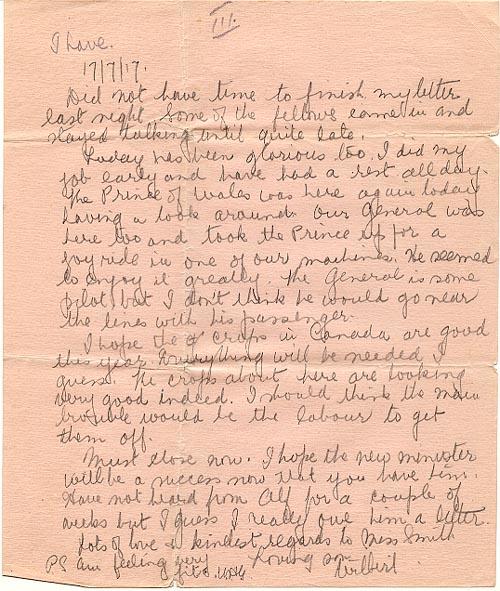 III.
I have.
17/7/17.
Did not have time to finish my letter
last night. Some of the fellows came in and
stayed talking until quite late.
Today has been glorious too. I did my
job early and have had a rest all day.
The Prince of Wales was here again today
having a look around. Our General was
here too and took the Prince up for a
joy ride in one of our machines. He seemed
to enjoy it greatly. The General is some
pilot but I don't think he would go near
the lines with his passenger.
I hope the crops in Canada are good
this year. Everything will be needed I
guess. The crops about here are looking
very good indeed. I should think the main
trouble would be the labour to get
them off.
Must close now. I hope the new minister
will be a success now that you have him.
Have not heard from Alf for a couple of
weeks but I guess I really owe him a letter.
Lots of love & kindest regards to Miss Smith
PS am feeling very Loving son
fit. Wilbert